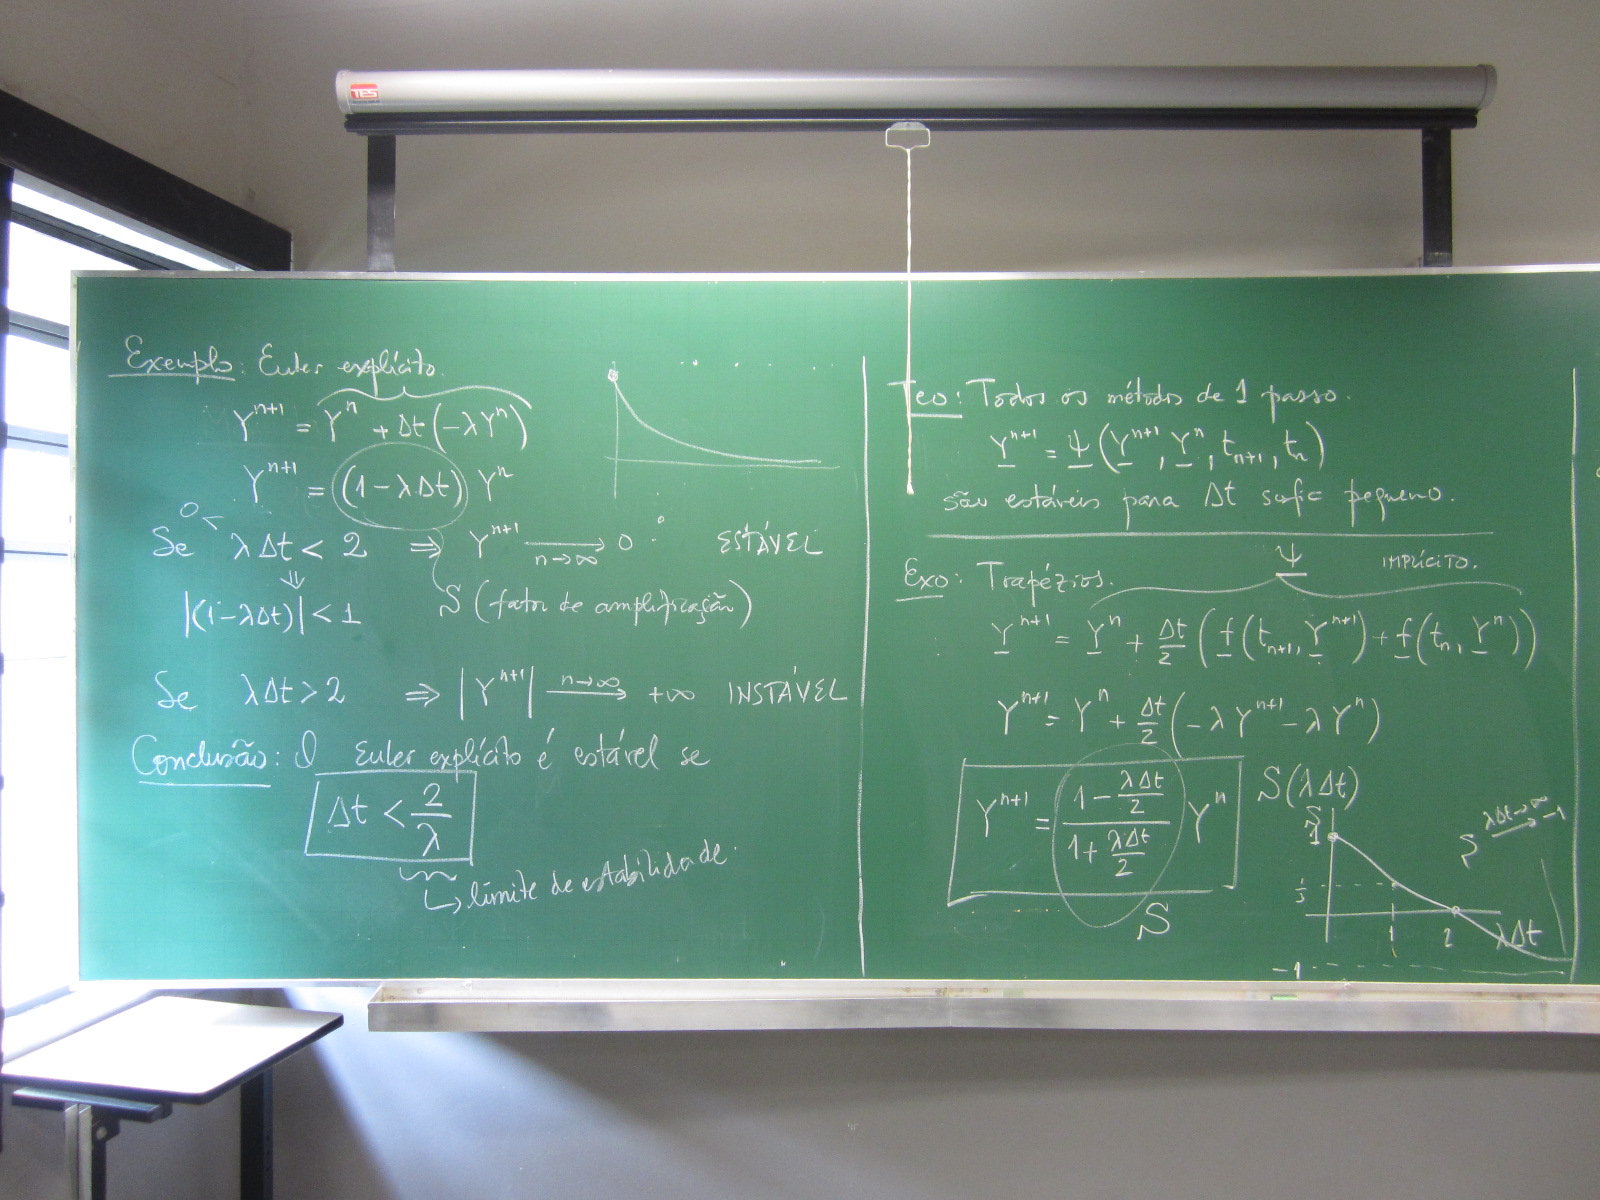 TES
Exemplo: Euler explícito.
Y^{n+1} = Y^n + Δt (-λY^n)
Y^{n+1} = (1-λΔt) Y^n
Se 0 < λΔt < 2 ⇒ Y^{n+1} → 0 ESTÁVEL
n→∞
⇓
|(1-λΔt)| < 1
S (fator de amplificação)
Se λΔt > 2 ⇒ |Y^{n+1}| → +∞ INSTÁVEL
n→∞
Conclusão: O Euler explícito é estável se
Δt < 2/λ
↳ límite de estabilidade.
Teo: Todos os métodos de 1 passo.
Y^{n+1} = Ψ (Y^{n+1}, Y^n, t_{n+1}, t_n)
são estáveis para Δt sufic pequeno.
Exo: Trapézios. Ψ IMPLÍCITO.
Y^{n+1} = Y^n + Δt/2 (f(t_{n+1}, Y^{n+1}) + f(t_n, Y^n))
Y^{n+1} = Y^n + Δt/2 (-λY^{n+1} - λY^n)
Y^{n+1} = (1 - λΔt/2)/(1 + λΔt/2) Y^n
S
S(λΔt)
S
1
1/3
1 2 λΔt
-1
S → -1
λΔt→∞